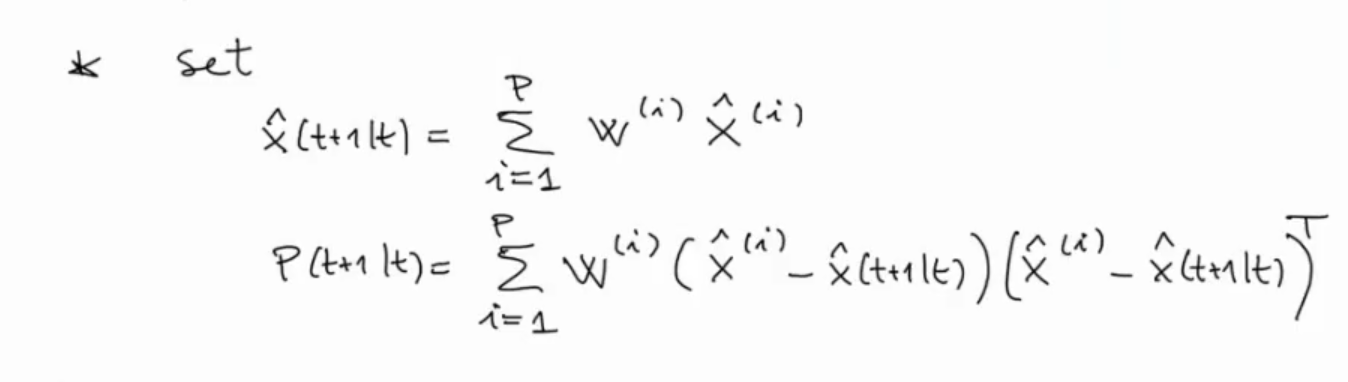 * set
x̂(t+1|t) = ∑_{i=1}^{P} w^{(i)} x̂^{(i)}
P(t+1|t) = ∑_{i=1}^{P} w^{(i)} (x̂^{(i)} - x̂(t+1|t)) (x̂^{(i)} - x̂(t+1|t))^T